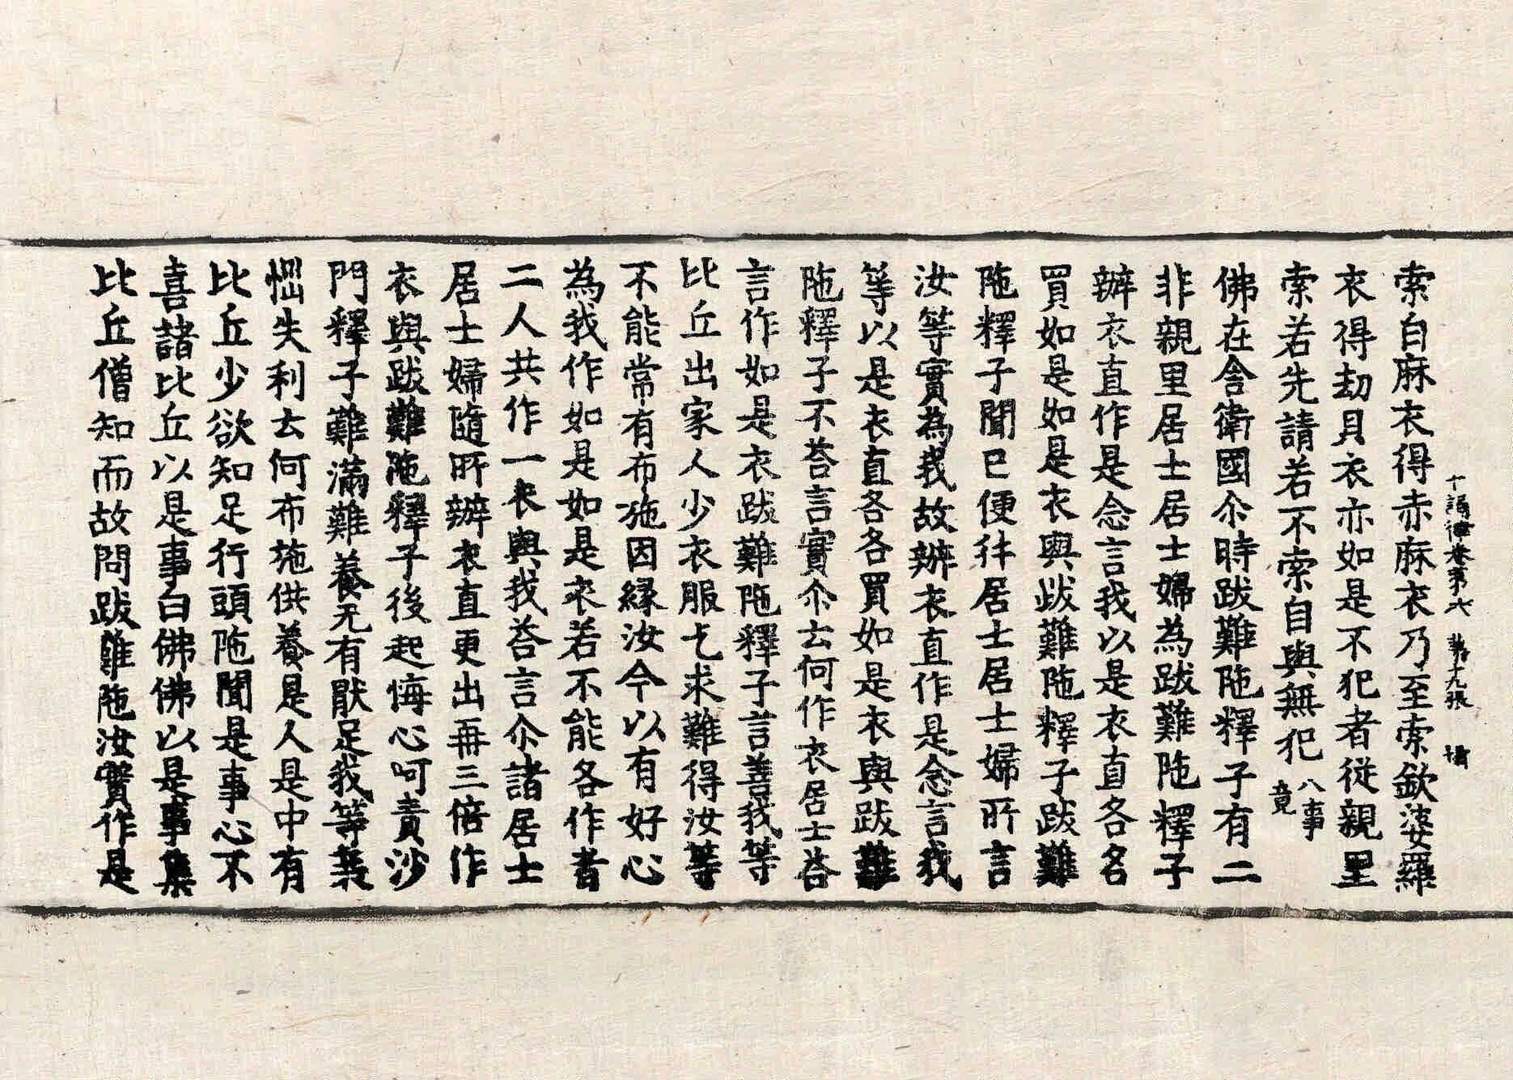 十誦律卷第六 第九張 楕
索白麻衣得赤麻衣乃至索欽婆羅
衣得劫貝衣亦如是不犯者從親里
索若先請若不索自與無犯 八事竟
佛在舍衛國尒時跋難陁釋子有二
非親里居士居士婦為跋難陁釋子
辦衣直作是念言我以是衣直各各
買如是如是衣與跋難陁釋子跋難
陁釋子聞已便往居士居士婦所言
汝等實為我故辦衣直作是念言我
等以是衣直各各買如是衣與跋難
陁釋子不荅言實尒云何作衣居士荅
言作如是衣跋難陁釋子言善我等
比丘出家人少衣服乞求難得汝等
不能常有布施因緣汝今以有好心
為我作如是如是衣若不能各作者
二人共作一衣與我荅言尒諸居士
居士婦隨所辦衣直更出再三倍作
衣與跋難陁釋子後起悔心呵責沙
門釋子難滿難養无有猒足我等衰
惱失利云何布施供養是人是中有
比丘少欲知足行頭陁聞是事心不
喜諸比丘以是事白佛佛以是事集
比丘僧知而故問跋難陁汝實作是